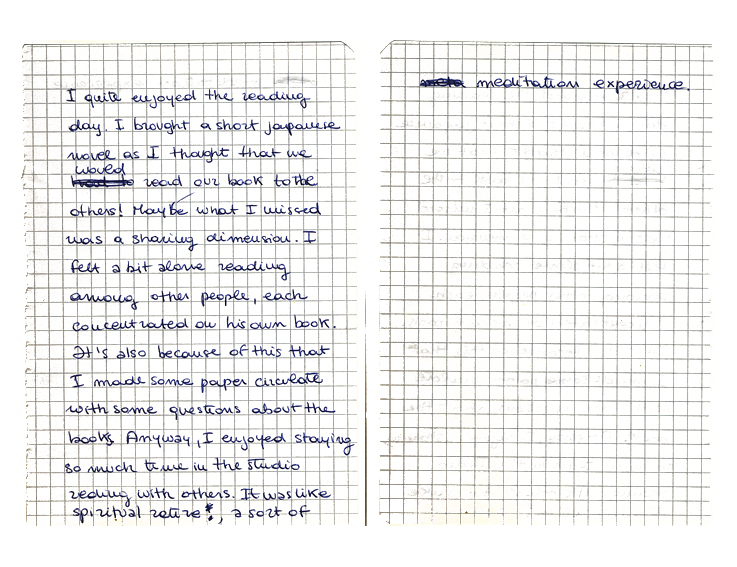 I quite enjoyed the reading
day. I brought a short japanese
novel as I thought that we
would
read our book to the
others! Maybe what I missed
was a sharing dimension. I
felt a bit alone reading
among other people, each
concentrated on his own book.
It's also because of this that
I made some paper circulate
with some questions about the
books. Anyway, I enjoyed staying
so much time in the studio
reding with others. It was like
spiritual retire*, a sort of
meditation experience.